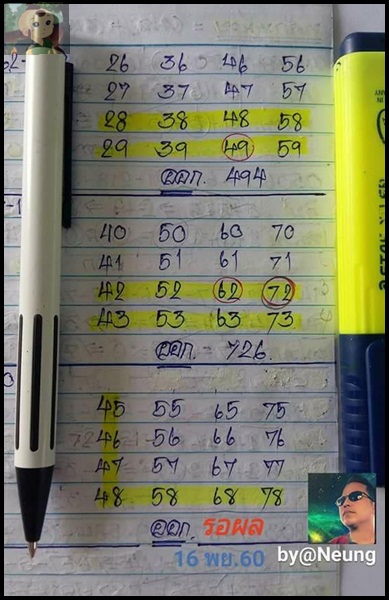 26 36 46 56
27 37 47 57
28 38 48 58
29 39 49 59
ออก. 494
40 50 60 70
41 51 61 71
42 52 62 72
43 53 63 73
ออก. = 726.
45 55 65 75
46 56 66 76
47 57 67 77
48 58 68 78
ออก. รอผล
16 พย.60 by@Neung